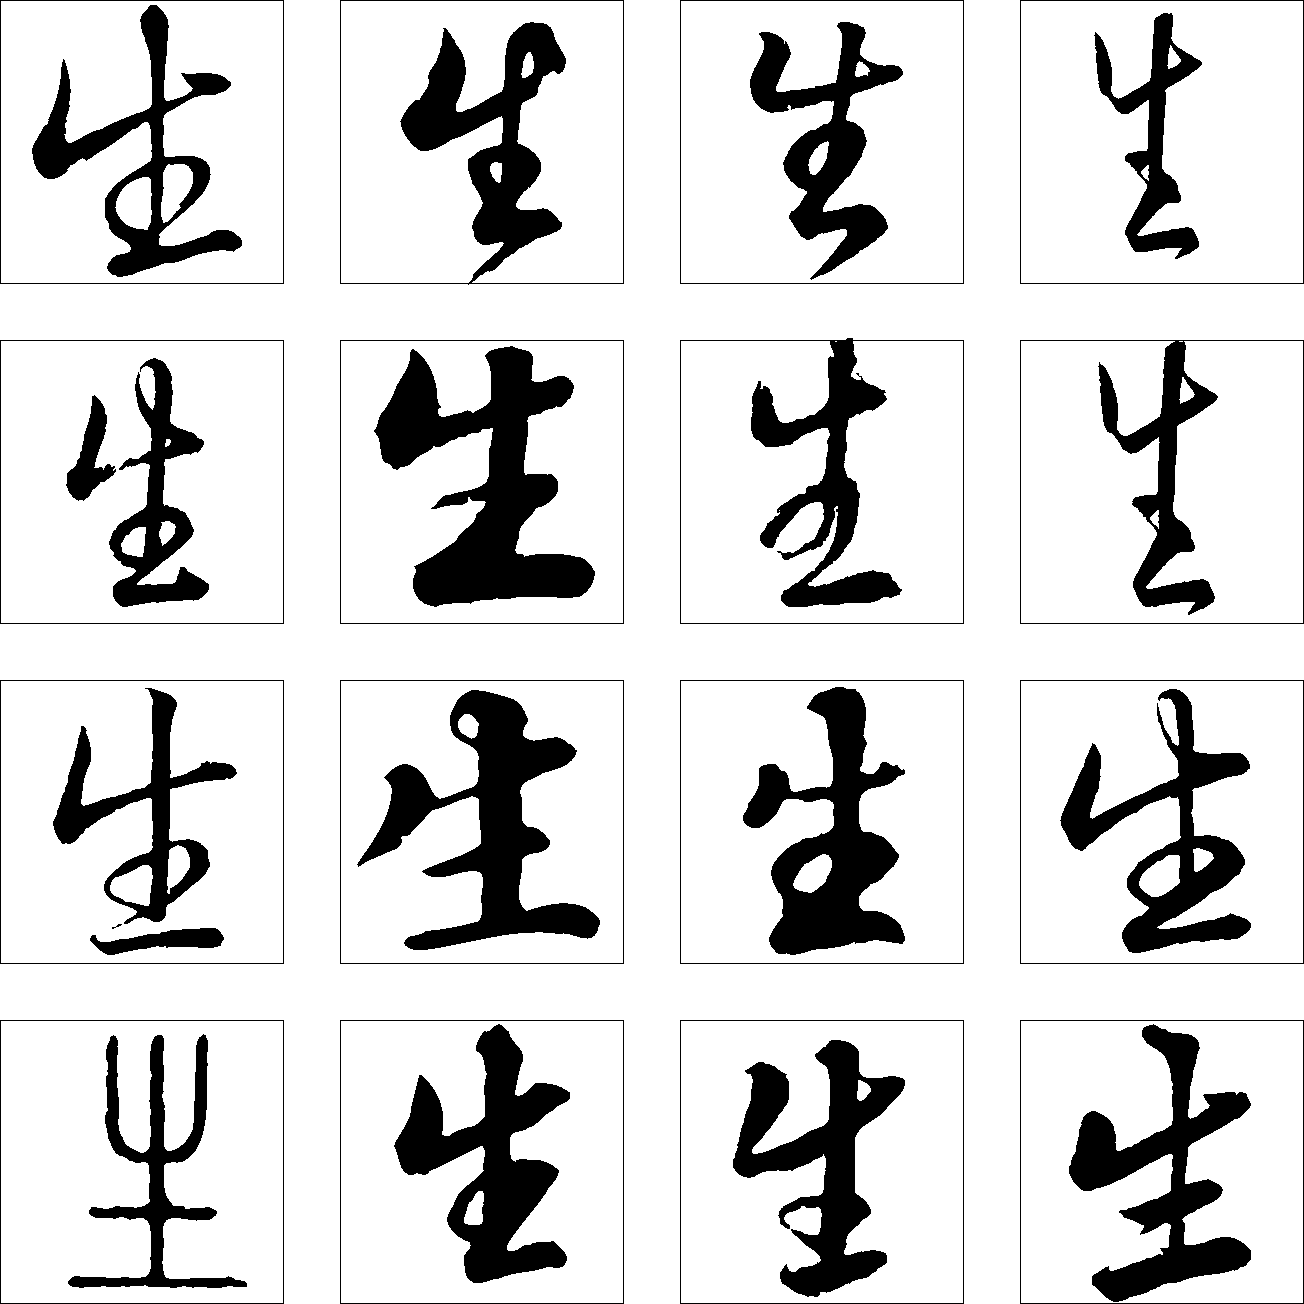 生生生生
生生生生
生生生生
生生生生